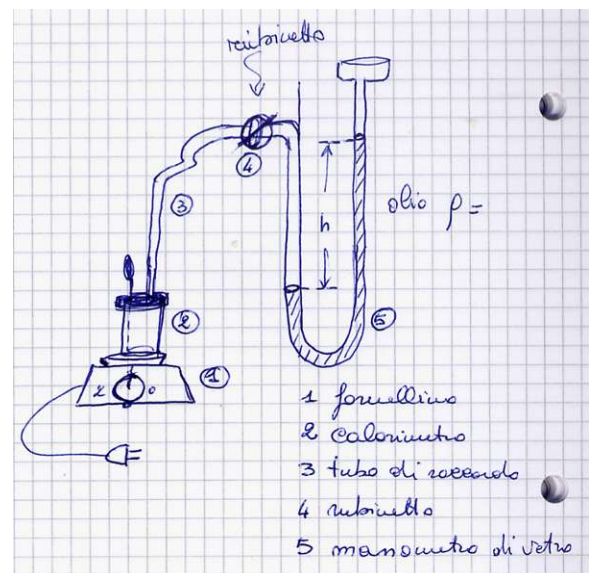 rubinetto
4
3
h
olio ρ =
2
5
1
2 0
1 fornellino
2 calorimetro
3 tubo di raccordo
4 rubinetto
5 manometro di vetro